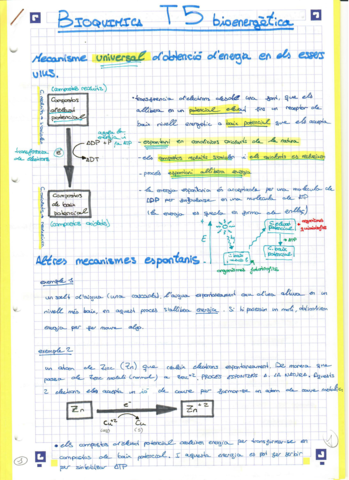 BIOQUIMICA T5 bioenergètica
Mecanisme universal d'obtenció d'energia en els éssers
vius.
(compostos reduïts)
Compostos
d'elevat
potencial
transferència
d'electrons
e⁻
ADP + P
ATP
Compostos
de baix
potencial
(compostos oxidats)
• transferència d'electrons
allibera en un potencial elevat per un receptor de
baix nivell energètic o baix potencial que els accepta
• espontani en condicions
• els compostos reduïts a els oxidats es redueixen
• procés espontani allibera energia
• la energia espontània és acceptada per una molècula de
ADP per en una molècula de ATP
(la energia es guarda en forma de enllaç)
E
C. elevat
potencial
C. baix
potencial
+ ATP
organismes fotosintètics
Altres mecanismes espontanis.
exemple 1
un salt d'aigua (una cascada) l'aigua espontàniament cau d'una altura en un
nivell més baix, en aquest procés s'allibera energia. Si hi posem un molí, obtindrem
energia per fer moure algo.
exemple 2
un àtom de Zinc (Zn) que cedeix electrons espontàniament. De manera que
passa de Zinc metall (mineral) a Zinc⁺², PROCÉS ESPONTANI A LA NATURA. Aquests
2 electrons els accepta un ió de coure per formar-se un àtom de coure metàl·lic
Zn
e⁻
Zn⁺²
Cu⁺²
Cu
• els compostos d'elevat potencial cedeixen energia per transformar-se en
compostos de baix potencial. I aquesta energia es pot fer servir
per sintetitzar ATP
1